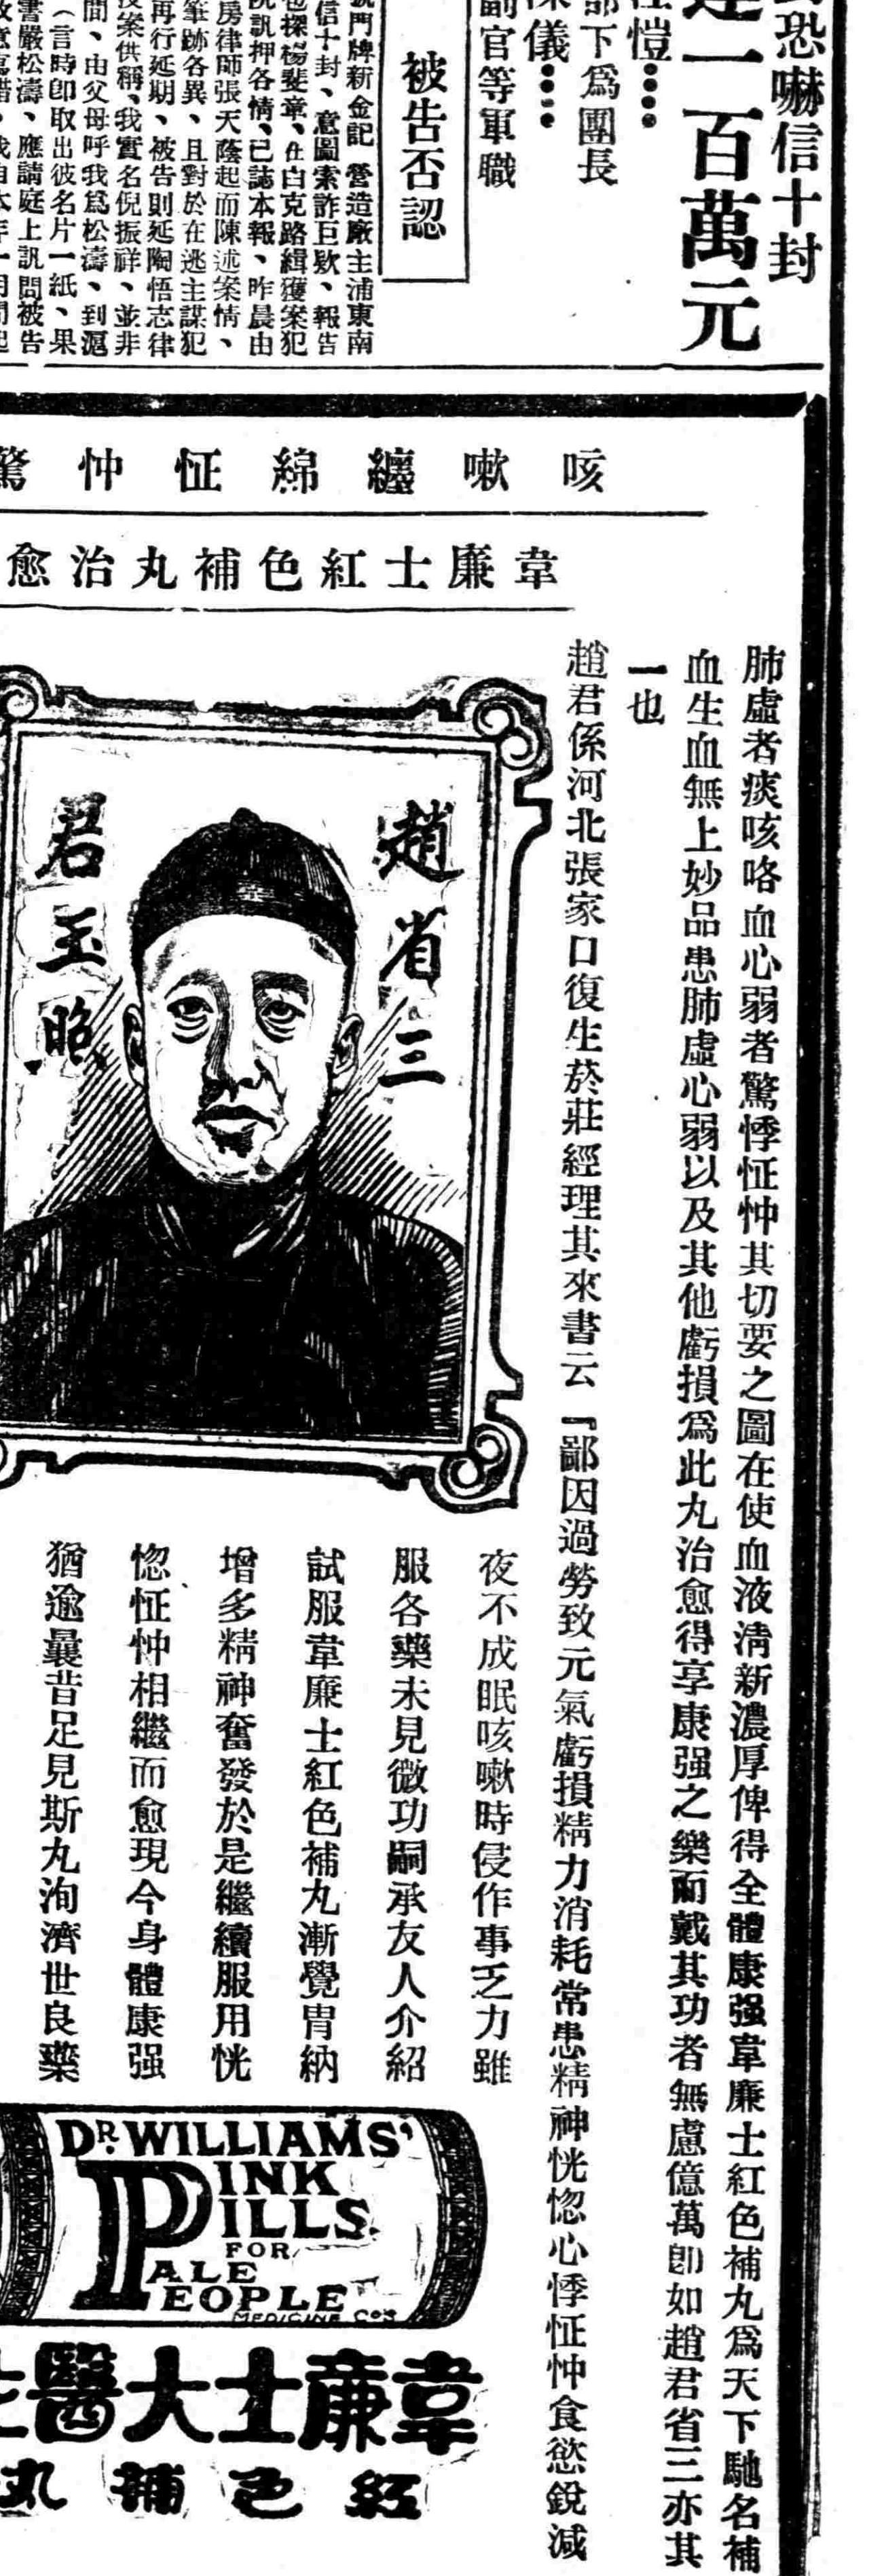 恐嚇信十封
一百萬元
愷‥‥
部下爲團長
儀‥‥
副官等軍職
被告否認
號門牌新金記營造廠主浦東南
信十封、意圖索詐巨欵、報告
包探楊斐章、在白克路緝獲案犯
院訊押各情、已誌本報、昨晨由
房律師張天蔭起而陳述案情、
筆跡各異、且對於在逃主謀犯
再行延期、被告則延陶悟志律
案供稱、我實名倪振祥、並非
間、由父母呼我爲松濤、到滬
（言時卽取出彼名片一紙、果
書嚴松濤、應請庭上訊問被告
咳嗽纏綿怔忡驚
韋廉士紅色補丸治愈
肺虛者痰咳咯血心弱者驚悸怔忡其切要之圖在使血液淸新濃厚俾得全體康强韋廉士紅色補丸爲天下馳名補
血生血無上妙品患肺虛心弱以及其他虧損爲此丸治愈得享康强之樂而戴其功者無慮億萬卽如趙君省三亦其
一也
趙君係河北張家口復生菸莊經理其來書云『鄙因過勞致元氣虧損精力消耗常患精神恍惚心悸怔忡食慾銳減
趙省三
君玉照
夜不成眠咳嗽時侵作事乏力雖
服各藥未見微功嗣承友人介紹
試服韋廉士紅色補丸漸覺胃納
增多精神奮發於是繼續服用恍
惚怔忡相繼而愈現今身體康强
猶逾曩昔足見斯丸洵濟世良藥
DR. WILLIAMS'
PINK
PILLS
FOR
PALE
PEOPLE
MEDICINE CO'S
韋廉士大醫生
紅色補丸